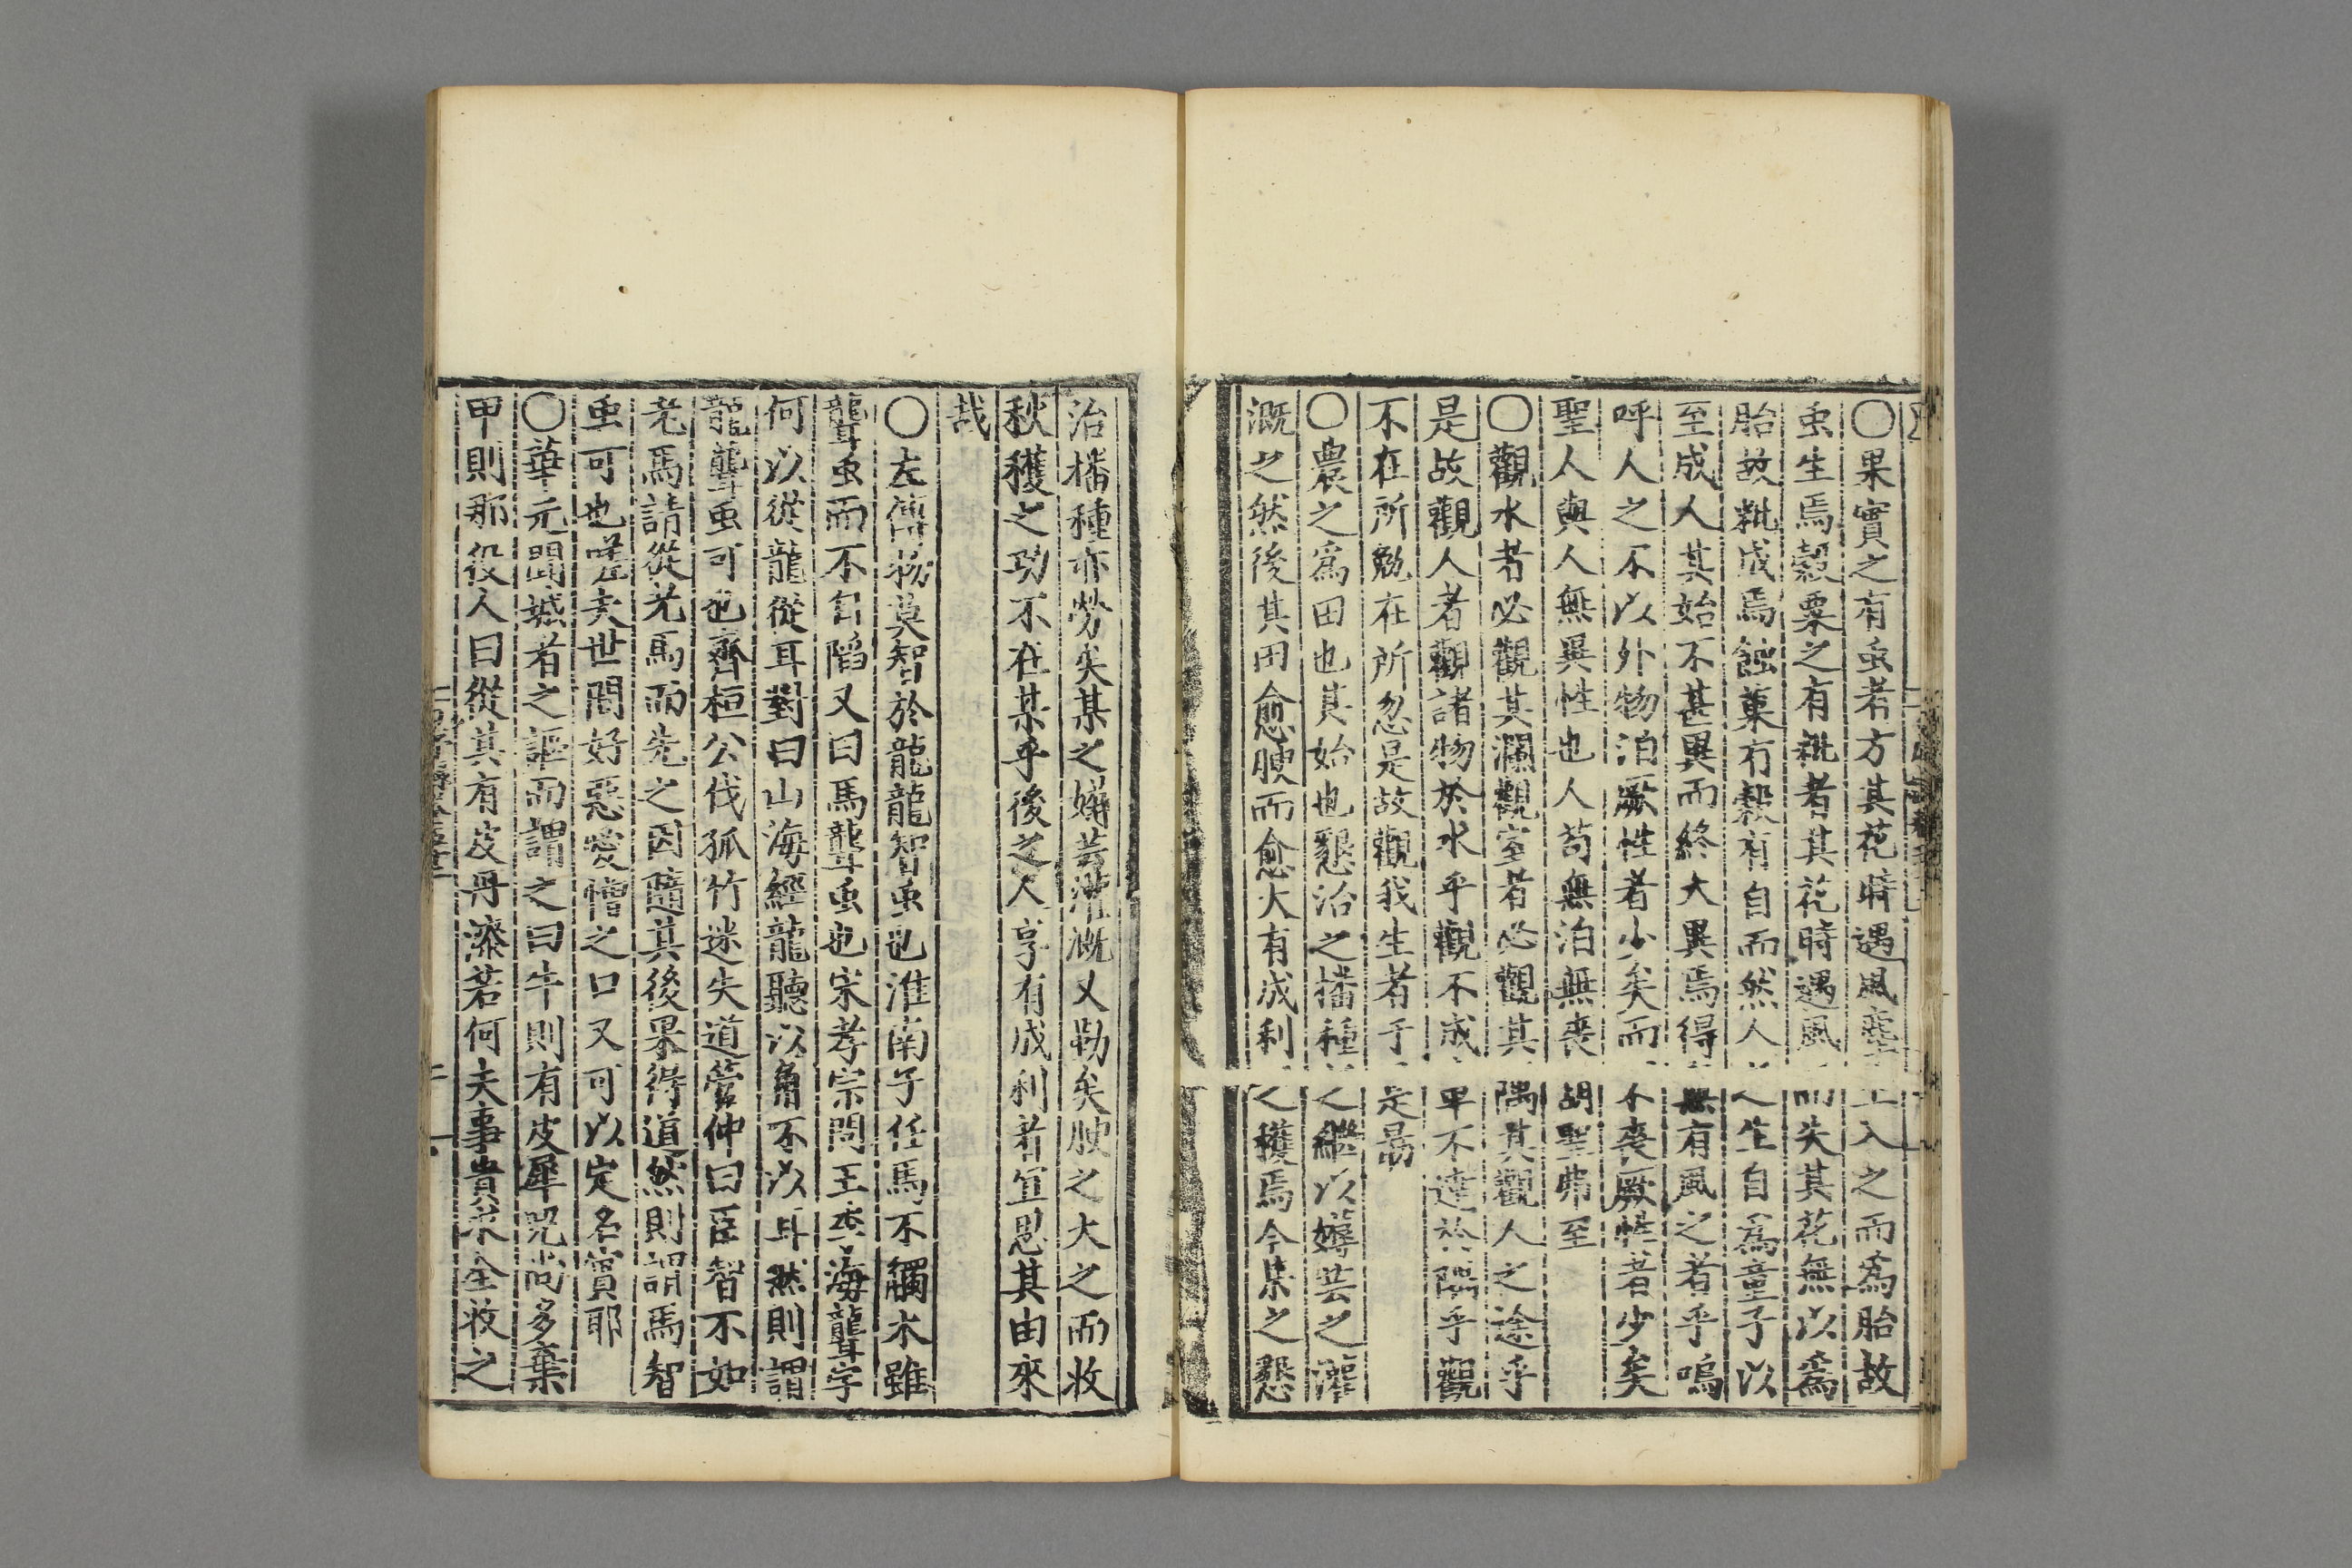 〇果實之有虫者方其花時遇風塵入之而爲胎故
虫生焉穀粟之有秕者其花時遇風而失其花無以爲
胎故秕成焉蝕菓有穀有自而然人生自爲童子以
至成人其始不甚異而終大異焉得無有風之者乎嗚
呼人之不以外物汨厥性者少矣而不喪厥性者少矣
聖人與人無異性也人苟無汨無喪胡聖弗至
〇觀水者必觀其瀾觀室者必觀其隅其觀人之途乎
是故觀人者觀諸物於水乎觀不成章不達於隅乎觀
不在所勉在所忽是故觀我生者于是曷
〇農之爲田也其始也懇治之播種之繼以耨芸之灌
溉之然後其田愈腴而愈大有成利之穫焉今某之懇
治播種亦勞矣某之耨芸灌溉又勤矣腴之大之而收
秋穫之功不在某乎後之人享有成利者宜思其由來
哉
〇左傳物莫智於龍龍智虫也淮南子任馬不觸木雖
聾虫而不自陷又曰馬聾虫也宋孝宗問王季海聾字
何以從龍從耳對曰山海經龍聽以角不以耳然則謂
龍聾虫可也齊桓公伐孤竹迷失道管仲曰臣智不如
老馬請從老馬而先之因隨其後果得道然則謂馬智
虫可也嗟夫世間好惡愛憎之口又可以定名實耶
〇華元聞城者之謳而謂之曰牛則有皮犀兕尚多棄
甲則那役人曰從其有皮丹漆若何夫事貴求全收之